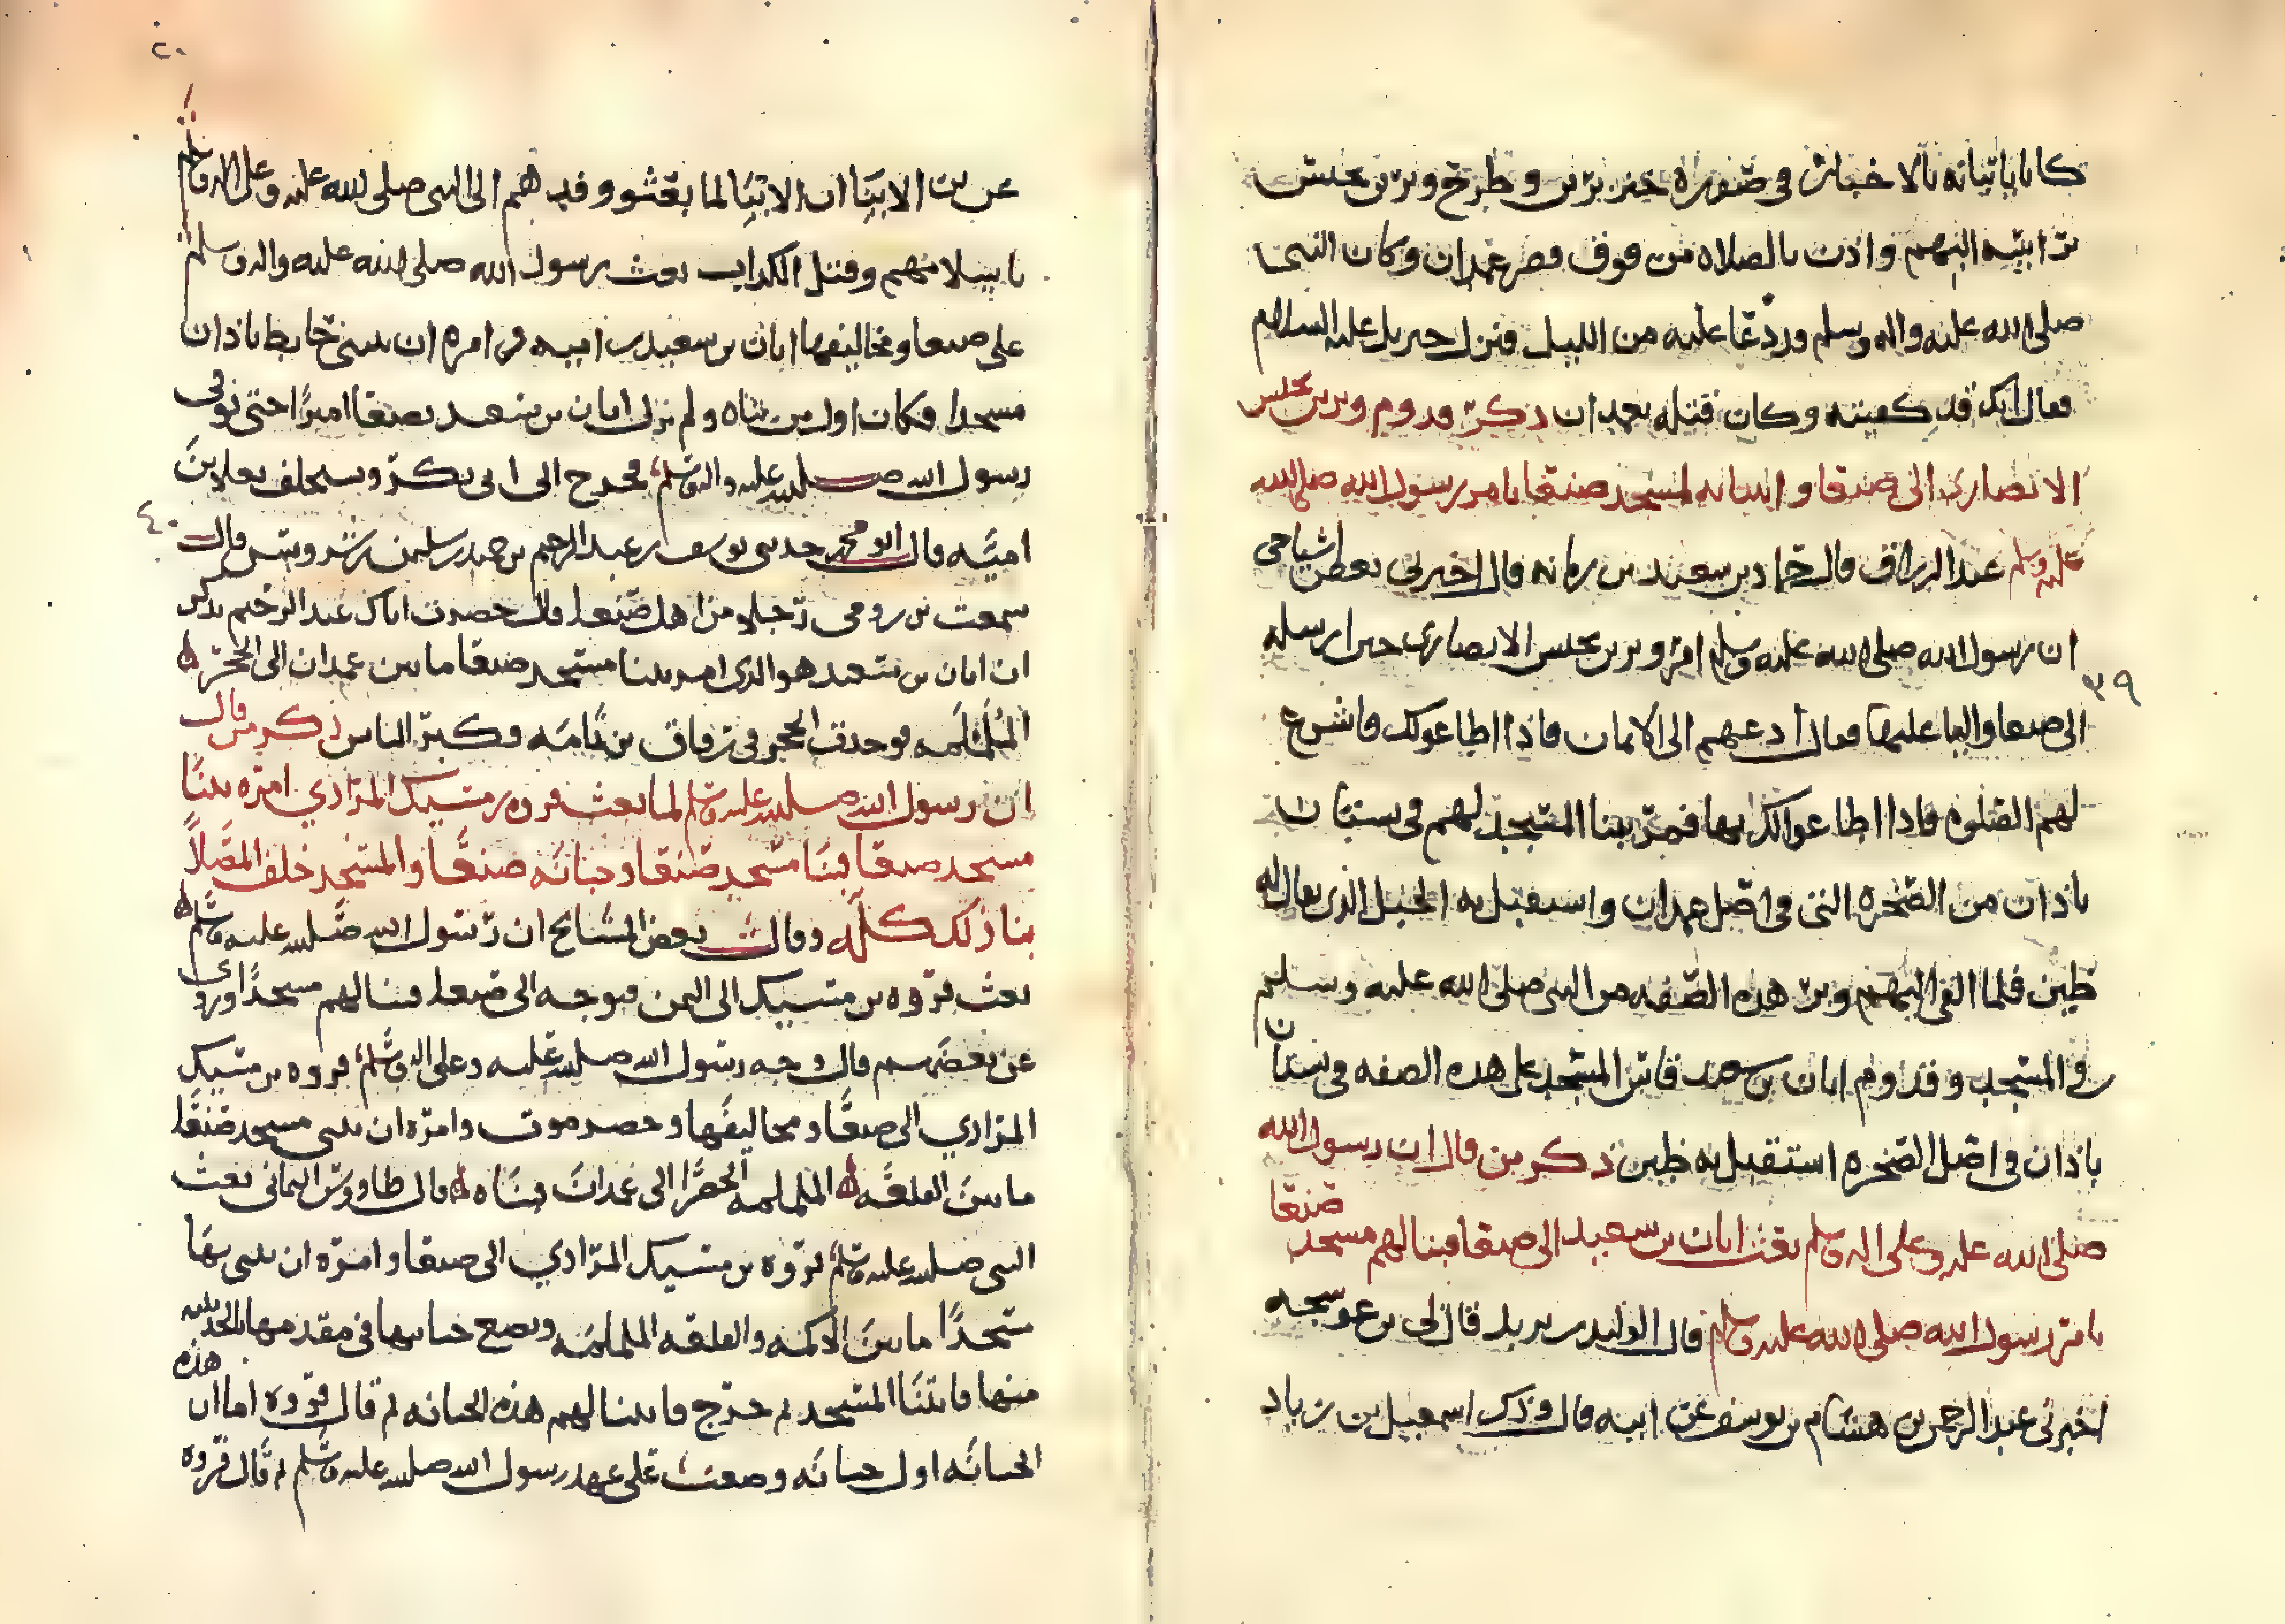 كانا ياتيانه بالاخبار في صوره خنزيرين وطرح وبر بن يحنس
براسه اليهم واذن بالصلاه من فوق قصر غمدان وكان النبي
صلى الله عليه واله وسلم ورد عا عليه من الليل فنزل جبريل عليه السلام
فقال انك قد كفيته وكان قتله بعد ان ذكر قدوم وبر بن يحنس
الانصاري الى صنعا وابتنائه لمسجد صنعا بامر رسول الله صلى الله
عليه وسلم عبد الرزاق قال حماد بن سعيد بن رمانه قال اخبرني بعض اشياخي
ان رسول الله صلى الله عليه وسلم امر وبر بن يحنس الانصاري حين ارسله
٣٩
الى صنعا واليا عليها فقال ادعهم الى الايمان فاذا اطاعو لك فاشرع
لهم الصلوه فاذا اطاعوا لك بها فمر ببنا المسجد لهم في بستان
باذان من الصخره التي في اصل غمدان واستقبل به الجبل الذي يقال له
ظين فلما القى اليهم وبر هذه الصفه من النبي صلى الله عليه وسلم
في المسجد وقدوم ابان بن سعيد فاسس المسجد على هذه الصفه في بستان
باذان في اصل الصخره استقبل به ظين ذكر من قال ان رسول الله
صلى الله عليه وعلى اله وسلم بعث ابان بن سعيد الى صنعا فبنا لهم مسجد صنعا
بامر رسول الله صلى الله عليه وسلم قال الوليد بن يزيد قال لي بن عوسجه
اخبرني عبد الرحمن بن هشام بن يوسف عن ابيه قال وذكر اسمعيل بن زياد
٢٠
عن من الابنا ان الابنا لما بعثو وفدهم الى النبي صلى الله عليه وعلى اله وسلم
باسلامهم وقتل الكداب بعث رسول الله صلى الله عليه واله وسلم
على صنعا ومخاليفها ابان بن سعيد بن اميه وامره ان يبني حايط باذان
مسجدا فكان اول من بناه ولم يزل ابان بن سعد بصنعا اميرا حتى توفي
رسول الله صلى الله عليه واله وسلم فخرج الى ابي بكر ويستخلف يعلا بن
٤٠
اميه قال ابو محمد حدثني يوسف بن عبد الرحيم بن حميد بن سليمن بن شروس قال
سمعت بن رومي رجلا من اهل صنعا قال حضرت اباك عبد الرحيم يذكر
ان ابان بن سعيد هو الذي امر ببنا مسجد صنعا ما بين غمدان الى الحجر
الململمه فوجدت الحجر في زقاق بن ثمامه وكبر الناس ذكر من قال
ان رسول الله صلى الله عليه وسلم لما بعث فروه بن مسيك المرادي امره ببنا
مسجد صنعا فبنا مسجد صنعا وجبانه صنعا والمسجد خلف المصلا
بنا ذلك كله وقال بعض المشايخ ان رسول الله صلى الله عليه وسلم
بعث فروه بن مسيك الى اليمن فتوجه الى صنعا فبنا لهم مسجدا وروى
عن بعضهم قال وجه رسول الله صلى الله عليه وعلى اله وسلم فروه بن مسيك
المرادي الى صنعا ومخاليفها وحضرموت وامره ان يبني مسجد صنعا
ما بين القلعه الململمه الخضرا الى غمدان فبناه قال طاووس اليماني بعث
النبي صلى الله عليه وسلم فروه بن مسيك المرادي الى صنعا وامره ان يبني بها
مسجدا ما بين الاكمه والقلعه الململمه ويضع جبانتها في مقدمها
منها فابتنا المسجد ثم خرج فابتنا لهم هذه الجبانه ثم قال فروه اما ان هذه
الجبانه اول جبانه وضعت على عهد رسول الله صلى الله عليه وسلم ثم قال فروه